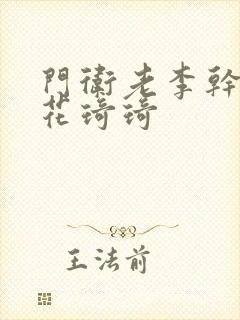 門衛老李幹
花琦琦
王法前